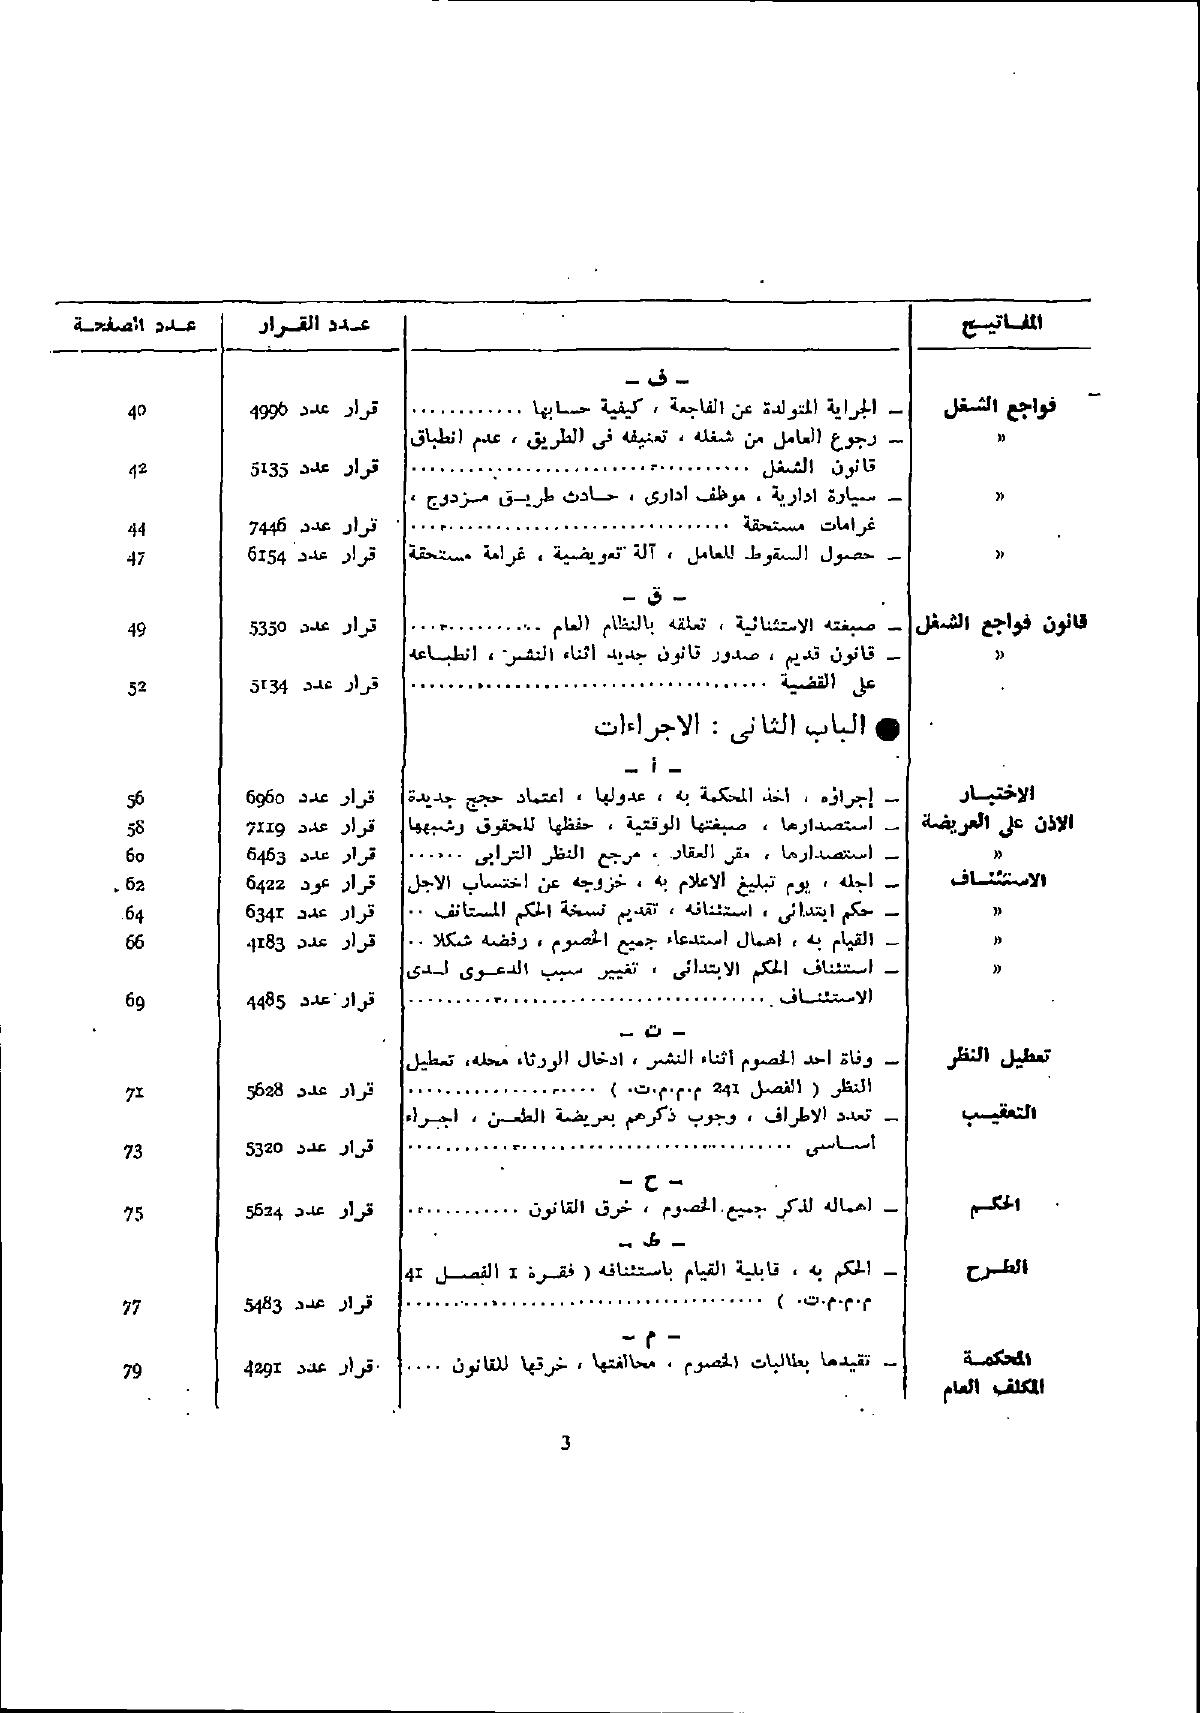 المفاتيح عدد القرار عدد الصفحة
– ف –
فواجع الشغل – الجراية المتولدة عن الفاجعة ، كيفية حسابها ............ قرار عدد 4996 40
» – رجوع العامل من شغله ، تعنيفه في الطريق ، عدم انطباق
قانون الشغل .................................... قرار عدد 5135 42
» – سيارة ادارية ، موظف ادارى ، حادث طريق مزدوج ،
غرامات مستحقة .................................... قرار عدد 7446 44
» – حصول السقوط للعامل ، آلة تعويضية ، غرامة مستحقة قرار عدد 6154 47
– ق –
قانون فواجع الشغل – صبغته الاستثنائية ، تعلقه بالنظام العام .............. قرار عدد 5350 49
» – قانون قديم ، صدور قانون جديد اثناء النشر ، انطباعه
على القضية .................................... قرار عدد 5134 52
● الباب الثانى : الاجراءات
– أ –
الاختبار – إجراؤه ، اخذ المحكمة به ، عدولها ، اعتماد حجج جديدة قرار عدد 6960 56
الاذن على العريضة – استصدارها ، صبغتها الوقتية ، حفظها للحقوق وشبهها قرار عدد 7119 58
» – استصدارها ، مقر العقار ، مرجع النظر الترابى ...... قرار عدد 6463 60
الاستئناف – اجله ، يوم تبليغ الاعلام به ، خروجه عن احتساب الاجل قرار عود 6422 62
» – حكم ابتدائى ، استئنافه ، تقديم نسخة الحكم المستانف .. قرار عدد 6341 64
» – القيام به ، اهمال استدعاء جميع الخصوم ، رفضه شكلا .. قرار عدد 4183 66
» – استئناف الحكم الابتدائى ، تغيير سبب الدعوى لدى
الاستئناف .................................... قرار عدد 4485 69
– ت –
تعطيل النظر – وفاة احد الخصوم أثناء النشر ، ادخال الورثاء محله، تعطيل
النظر ( الفصل 241 م.م.م.ت. ) .................... قرار عدد 5628 71
التعقيب – تعدد الاطراف ، وجوب ذكرهم بعريضة الطعن ، اجراء
أساسى .................................... قرار عدد 5320 73
– ح –
الحكم – اهماله لذكر جميع الخصوم ، خرق القانون ............ قرار عدد 5624 75
– ط –
الطرح – الحكم به ، قابلية القيام باستئنافه ( فقرة 1 الفصل 41
م.م.م.ت. ) .................................... قرار عدد 5483 77
– م –
المحكمة – تقيدها بطالبات الخصوم ، مخالفتها ، خرقها للقانون .... قرار عدد 4291 79
المكلف العام
3